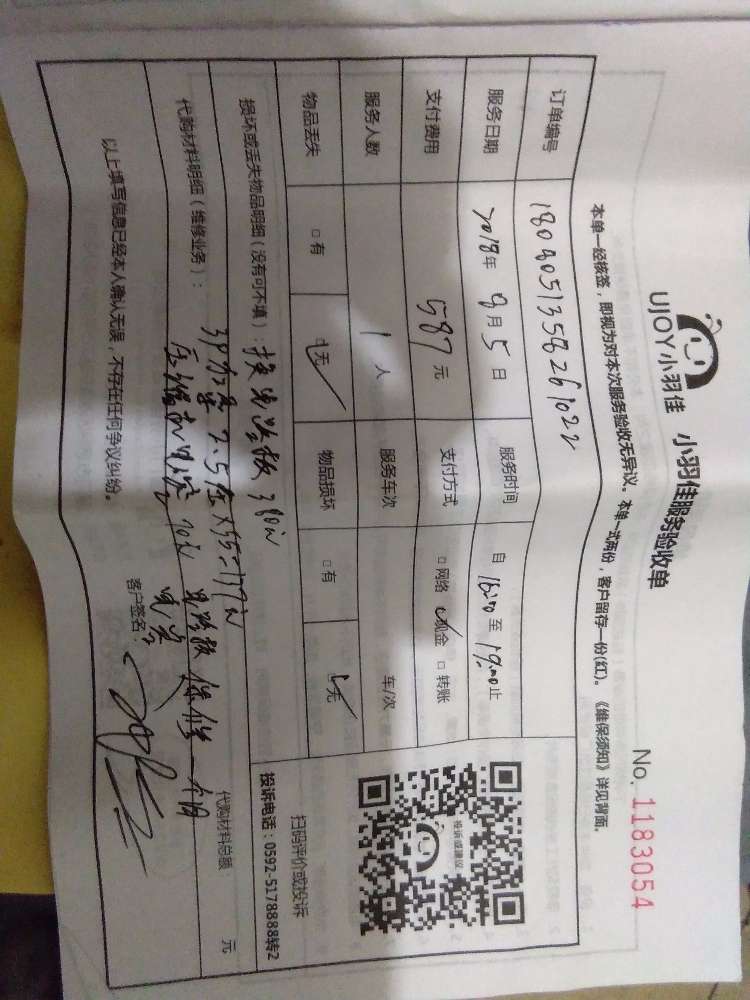 UJOY小羽佳 小羽佳服务验收单
No. 1183054
本单一经核签，即视为对本次服务验收无异议。本单一式两份，客户留存一份(红)。《维保须知》详见背面。
订单编号
服务日期 2018年 8月 5日 服务时间 自 16:00 至 19:00 止
支付费用 587 元 支付方式 □网络 ☑现金 □转账
服务人数 1 人 服务车次 车/次
物品丢失 □有 ☑无 物品损坏 □有 ☑无
投诉或建议
扫码评价或投诉
投诉电话：0592-5178888转2
损坏或丢失物品明细（没有可不填）： 380元
代购材料明细（维修业务）： 代购材料总额 元
保修一个月
客户签名：
以上填写信息已经本人确认无误，不存在任何争议纠纷。